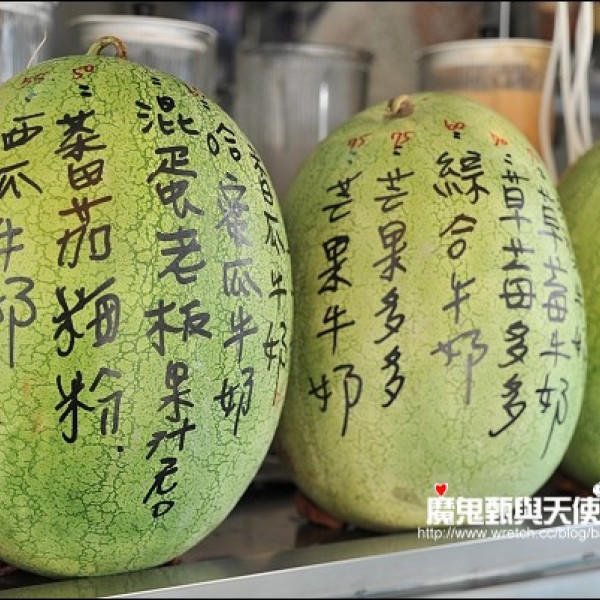 西瓜牛奶
蕃茄梅粉
混蛋老板果汁店
哈蜜瓜牛奶
瓜牛奶
芒果牛奶
芒果多多
綜合牛奶
草莓多多
草莓牛奶
魔鬼甄與天使
http://www.wretch.cc/blog/b